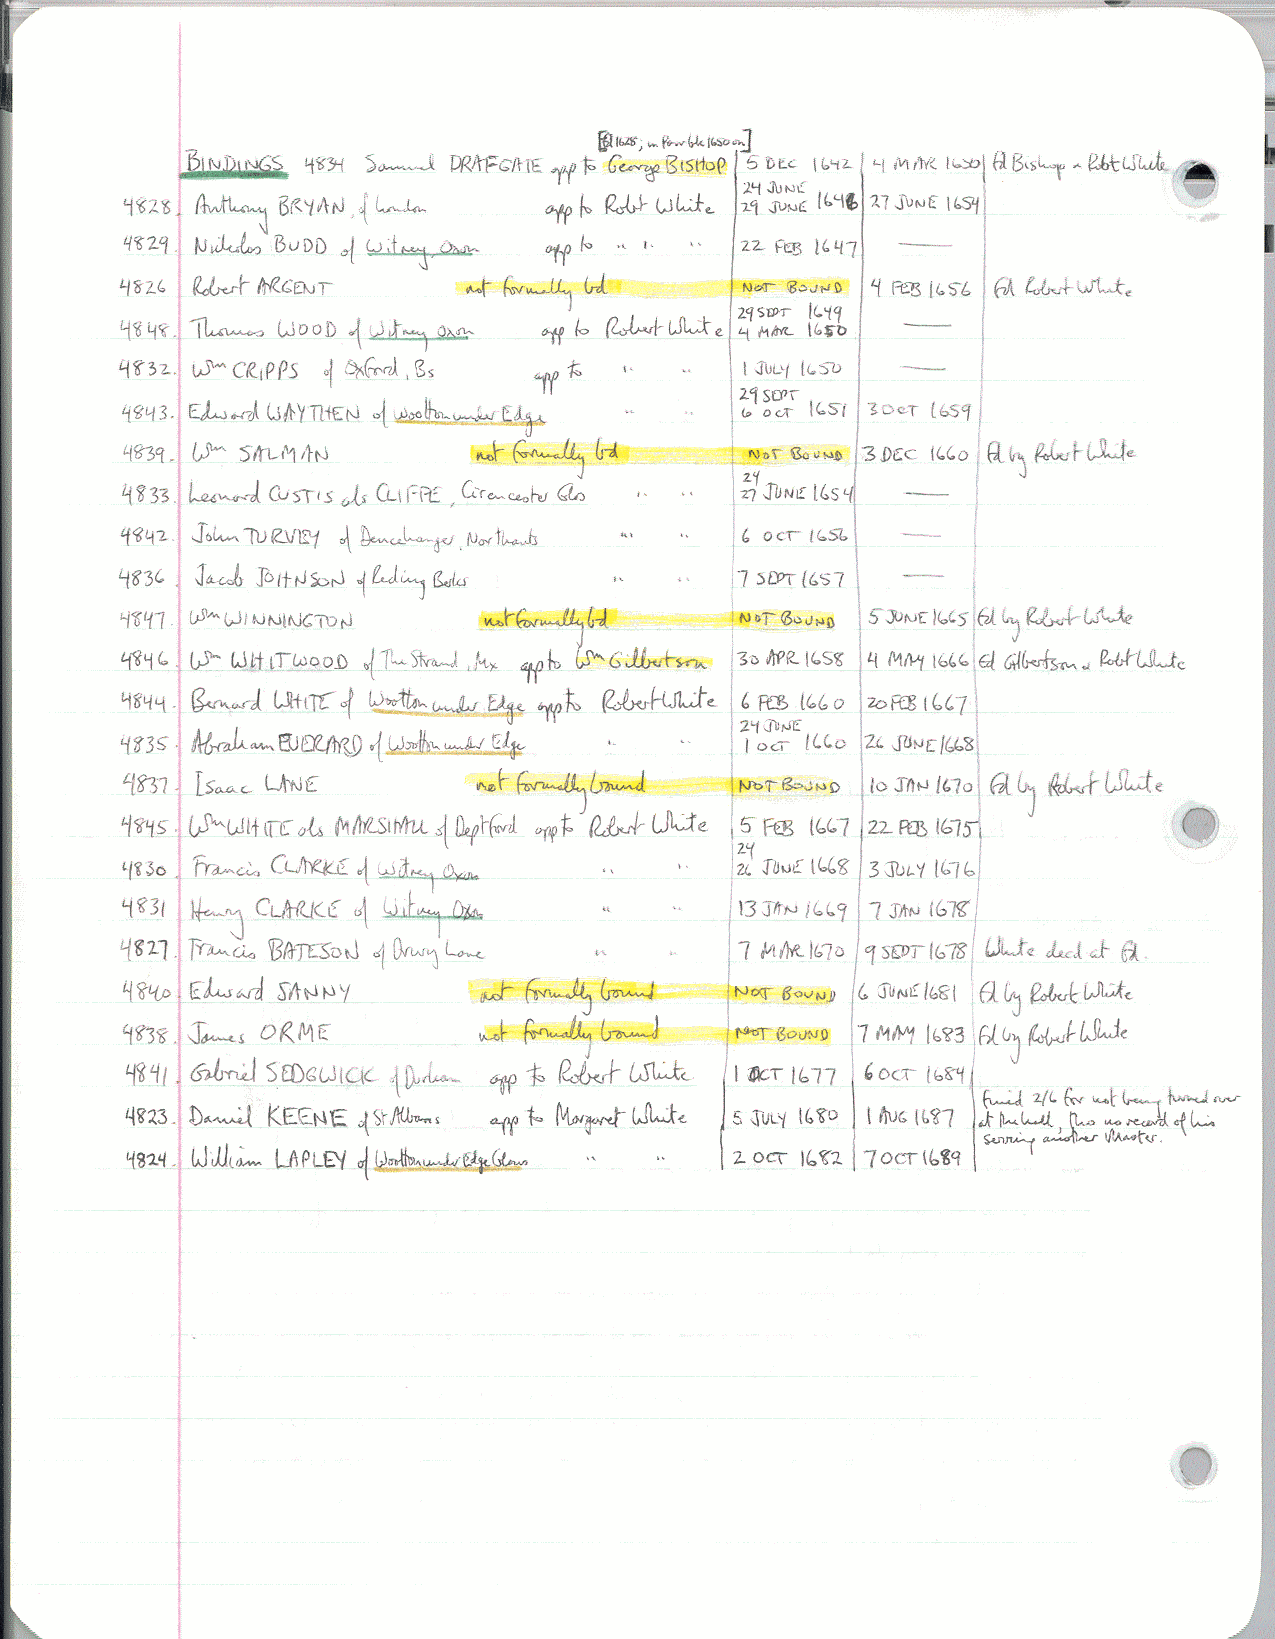 [fd 1628; in Poor bk 1650 on]
BINDINGS 4834 Samuel DRAFGATE app to George BISHOP 5 DEC 1642 4 MAR 1650 fd Bishop & Robt White
24 JUNE
4828. Anthony BRYAN, of London app to Robt White 29 JUNE 1646 27 JUNE 1654
4829. Nicholas BUDD of Witney, Oxon app to " " " 22 FEB 1647 —
4826 Robert ARGENT not formally bd NOT BOUND 4 FEB 1656 fd Robert White
29 SEPT 1649
4848. Thomas WOOD of Witney Oxon app to Robert White 4 MAR 1650 —
4832. Wm CRIPPS of Oxford, Bs app to " " 1 JULY 1650 —
29 SEPT
4843. Edward WAYTHEN of Wootton under Edge " " 6 OCT 1651 3 OCT 1659
4839. Wm SALMAN not formally bd NOT BOUND 3 DEC 1660 fd by Robert White
24
4833. Leonard CUSTIS als CLIFFE, Cirencester Glos " " 27 JUNE 1654 —
4842. John TURVEY of Denchanger, Northants " " 6 OCT 1656 —
4836. Jacob JOHNSON of Reding Berks " " 7 SEPT 1657 —
4847. Wm WINNINGTON not formally bd NOT BOUND 5 JUNE 1665 fd by Robert White
4846. Wm WHITWOOD of The Strand, Mx app to Wm Gilbertson 30 APR 1658 4 MAY 1666 fd Gilbertson & Robt White
4844. Bernard WHITE of Wootton under Edge app to Robert White 6 FEB 1660 20 FEB 1667
24 JUNE
4835. Abraham EVERARD of Wootton under Edge " " 1 OCT 1660 26 JUNE 1668
4837. Isaac LANE not formally bound NOT BOUND 10 JAN 1670 fd by Robert White
4845. Wm WHITE als MARSHALL of Deptford app to Robert White 5 FEB 1667 22 FEB 1675
24
4830. Francis CLARKE of Witney Oxon " " 26 JUNE 1668 3 JULY 1676
4831 Henry CLARKE of Witney Oxon " " 13 JAN 1669 7 JAN 1678
4827. Francis BATESON of Drury Lane " " 7 MAR 1670 9 SEPT 1678 White decd at fd.
4840 Edward SANNY not formally bound NOT BOUND 6 JUNE 1681 fd by Robert White
4838. James ORME not formally bound NOT BOUND 7 MAY 1683 fd by Robert White
4841 Gabriel SEDGWICK of Durham app to Robert White 1 OCT 1677 6 OCT 1684
fined 2/6 for not being turned over
4823. Daniel KEENE of St Albans app to Margaret White 5 JULY 1680 1 AUG 1687 at the hall, tho no record of his
serving another Master.
4824. William LAPLEY of Wootton under Edge Glous " " 2 OCT 1682 7 OCT 1689